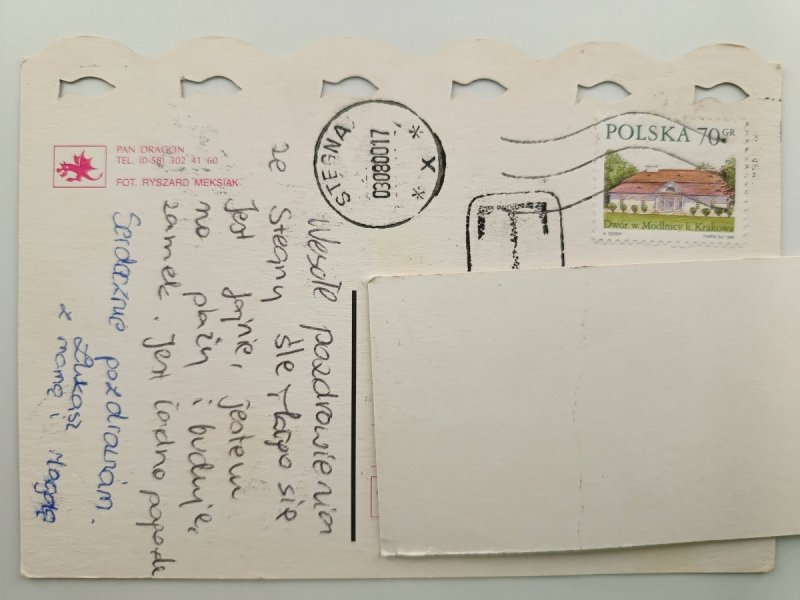 PAN DRAGON
TEL. (0-58) 302 41 60
FOT. RYSZARD MEKSIAK
STEGNA
03080017
* X *
POLSKA 70 GR
Dwór w Modlnicy k. Krakowa
Wesołe pozdrowienia
ze Stegny śle się
Jest fajnie, jestem
na plaży i buduje,
zamek. Jest ładna
Serdecznie pozdrawiam.
Łukasz
z mamą i